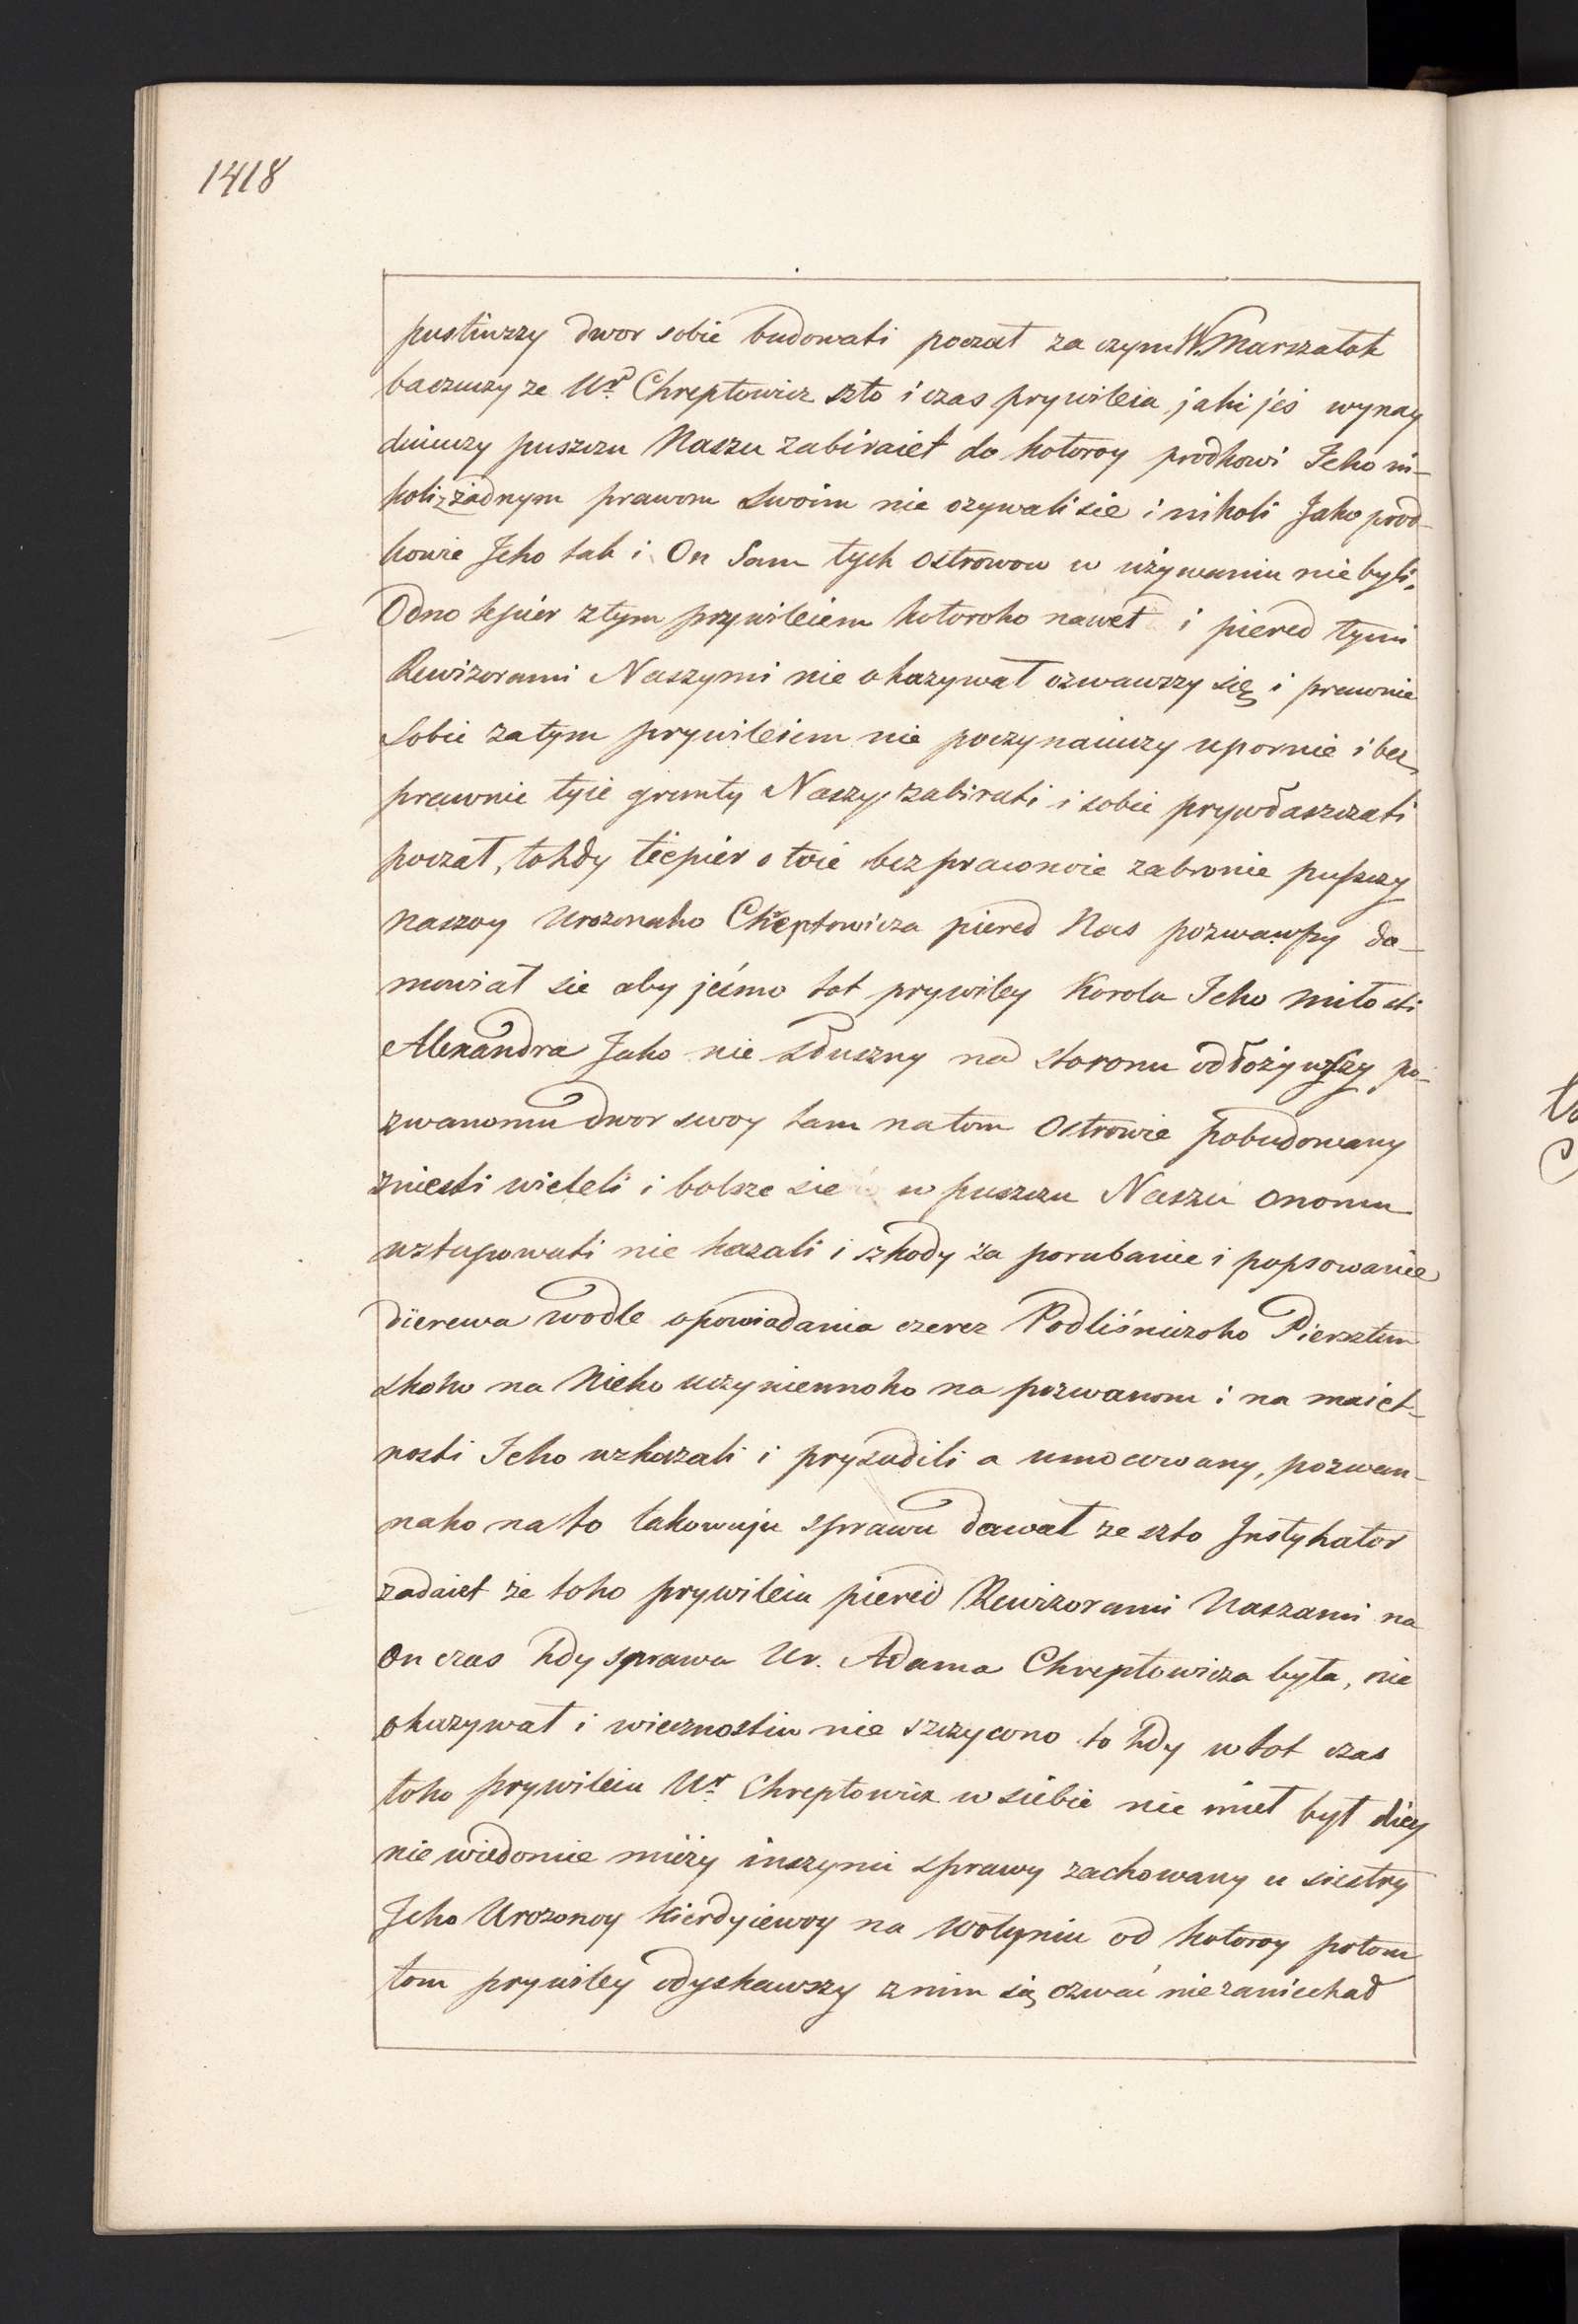 1418
pustiwszy dwor sobie budowati poczał za czym W. Marszałok
baczuczy ze Ur. Chreptowicz szto i czas prywileia jaki jes wynay
duiuczy puszczu Naszu zabiraiet do kotoroy prodkowi Jeho ni-
koli z żadnym prawom swoim nie ozywali sie i nikoli Jako prod-
kowie Jeho tak i On Sam tych ostrowow w używaniu nie byli.
Odno tepier z tym prywileiem kotoroho nawet i piered tymi
Rewizorami Naszymi nie okazywał ozwawszy się i prawnie
sobie za tym prywileiem nie poczynaiuczy upornie i bez
prawnie tyie grunty Naszy zabirati i sobie prywłaszczati
poczał, tohdy tiepier o toie bezprawnoie zabranie puszczy
naszoy Urozonaho Chreptowicza piered Nas pozwawszy do-
mowiał sie aby jeśmo tot prywiley Korola Jeho miłosti
Alexandra Jako nie słuszny na storonu odłożywszy po-
zwanomu dwor swoy tam na tom Ostrowie pobudowany
zniesti wieleli i bolsze sie w puszczu Naszu onomu
wstupowati nie kazali i szkody za porubanie i popsowanie
dierewa wodle opowiadania czerez Podliśniczoho Piersztun
skoho na Nieho uczyniennoho na pozwanom i na maiet-
nosti Jeho wskazali i prysudili a umocowany, pozwan-
naho na to takowuju sprawu dawał ze szto Instyhator
zadaiet że toho prywileiu piered Rewizorami Naszami na
On czas hdy sprawa Ur. Adama Chreptowicza była, nie
okazywał i wiecznostiu nie szczycono to hdy w tot czas
toho prywileiu Ur. Chreptowicz w siebie nie miet był diey
nie wiedomie miży inszymi sprawy zachowany u siestry
Jeho Urozonoy Kierdyiewoy na Wołyniu od kotoroy potom
tom prywiley odyskawszy z nim się ozwać nie zaniechał